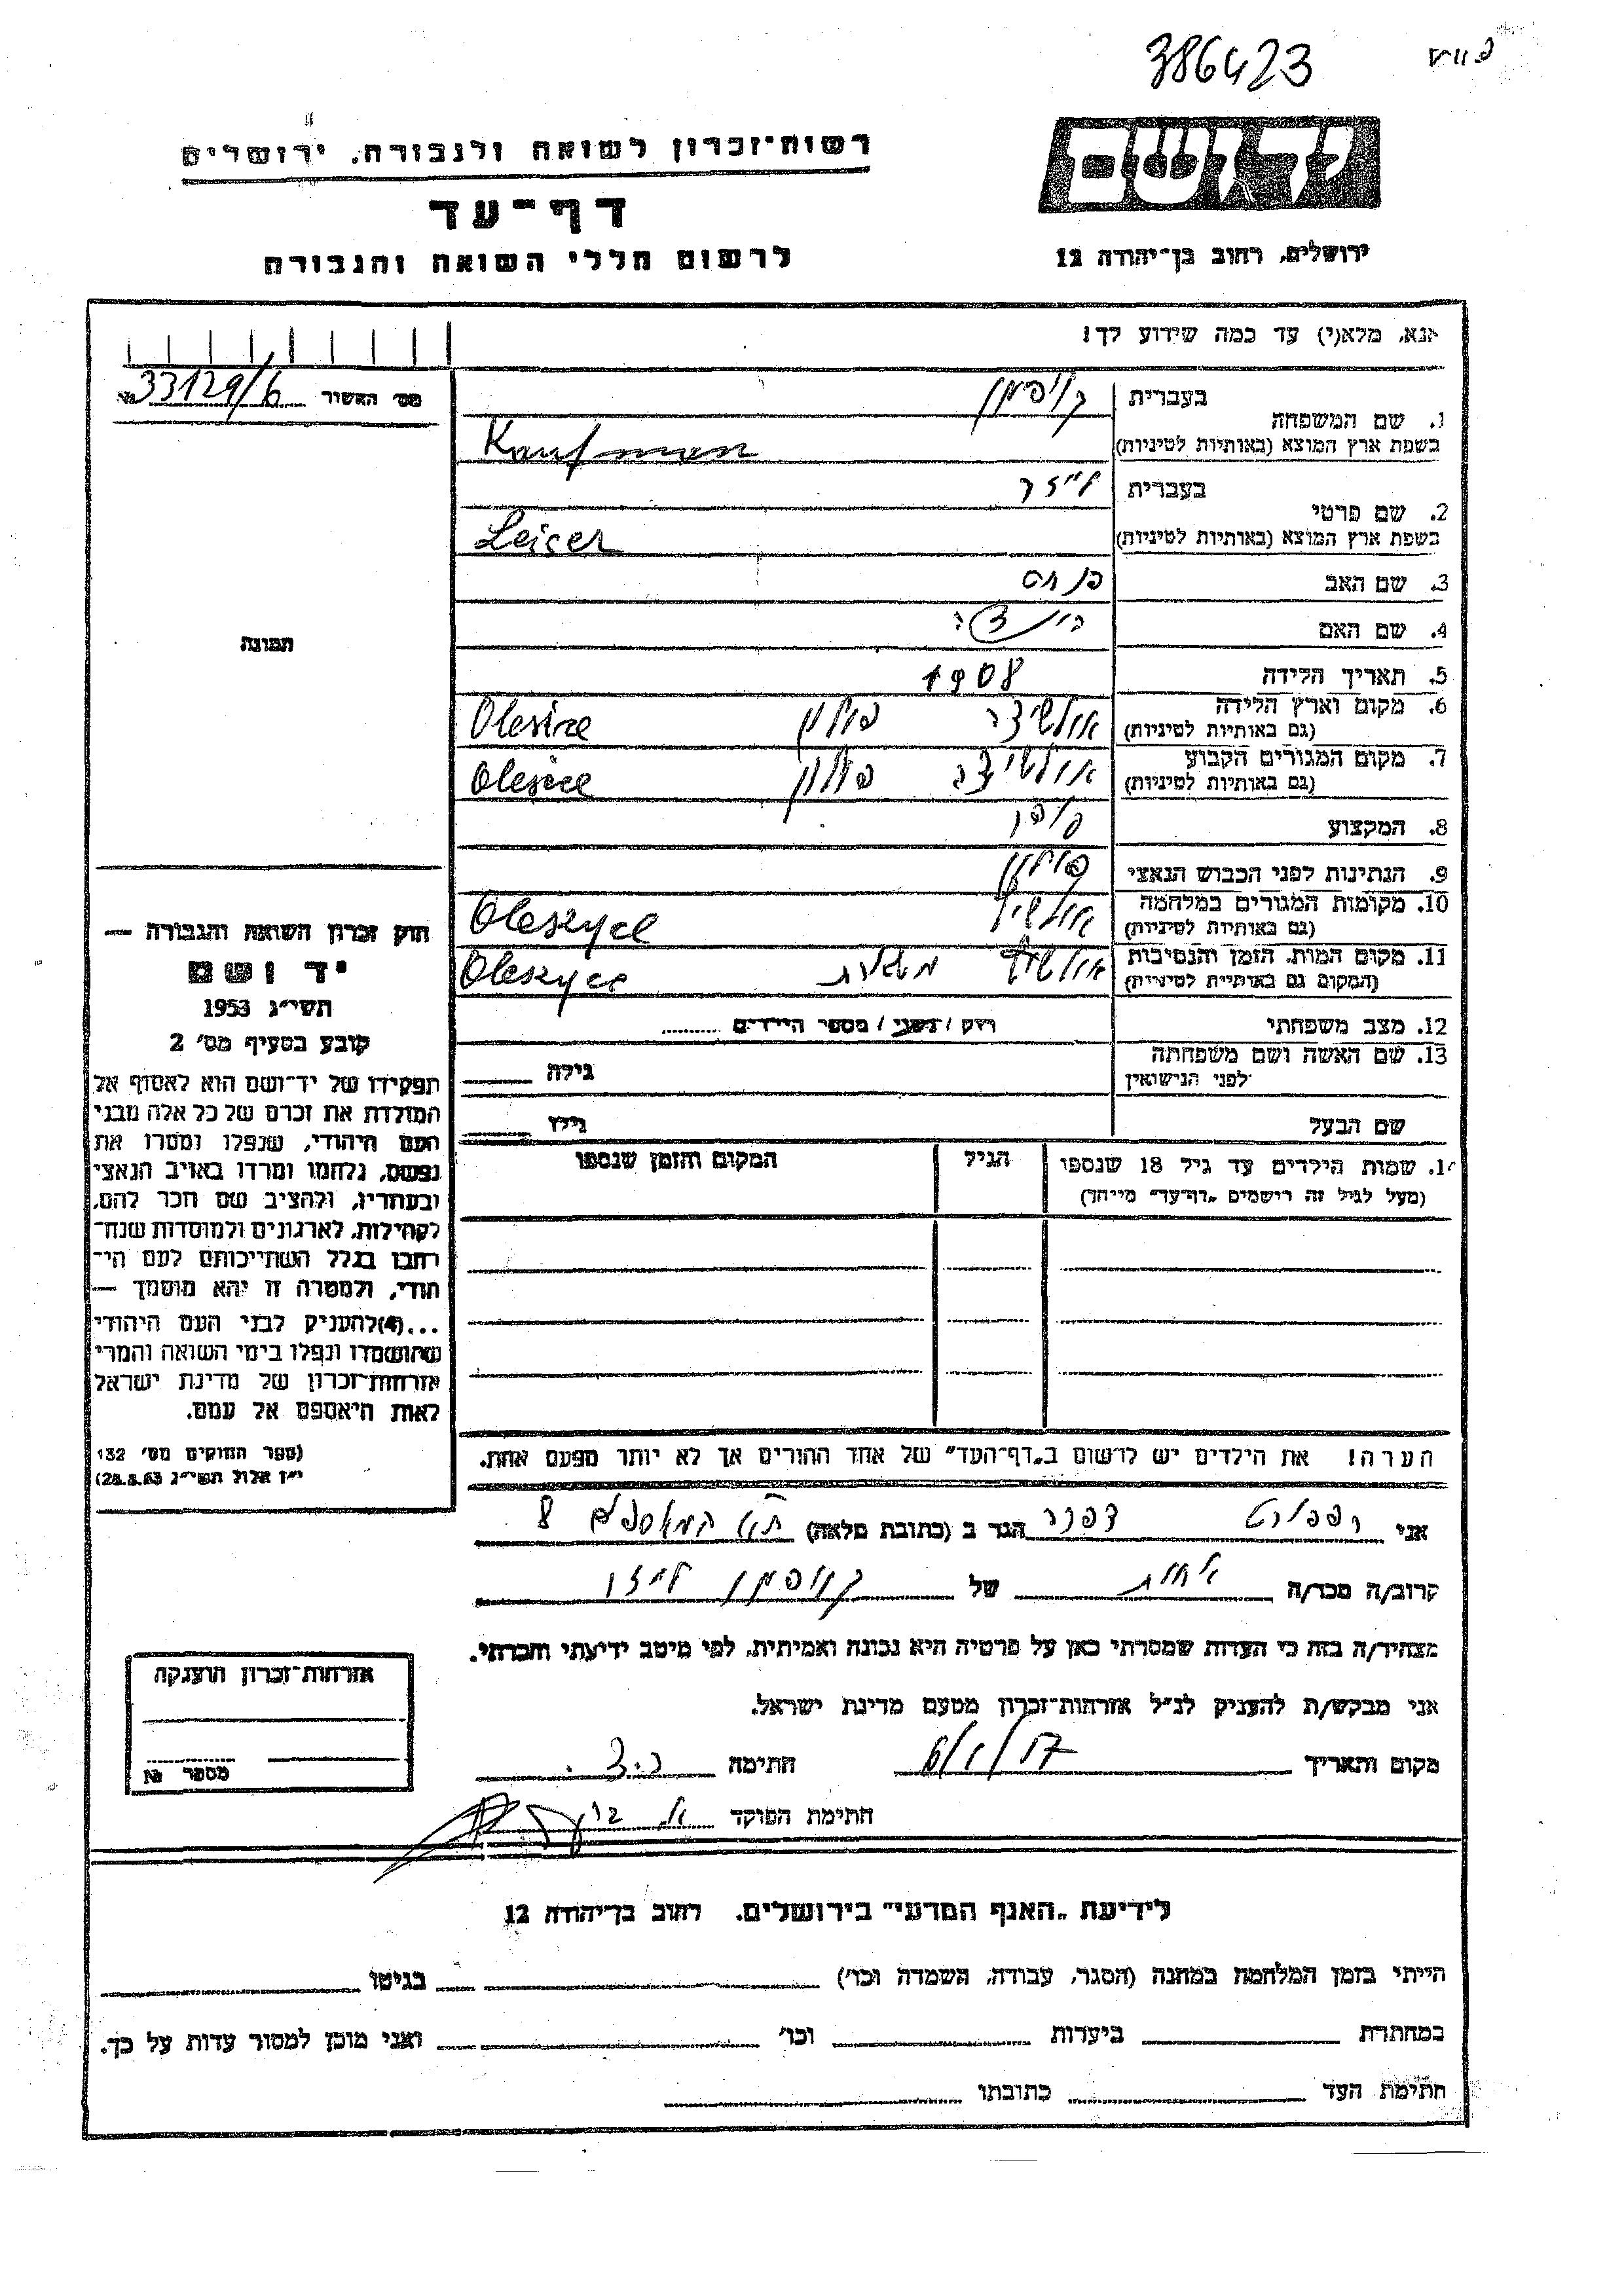 386423
רשות־זכרון לשואה ולגבורה, ירושלים
דף־עד
לרשום חללי השואה והגבורה
יד ושם
ירושלים, רחוב בן־יהודה 12
אנא, מלא(י) עד כמה שידוע לך!
מס׳ האשור 33129/6 №
1. שם המשפחה
בעברית קויפמן
בשפת ארץ המוצא (באותיות לטיניות) Kaufman
2. שם פרטי
בעברית לייזר
בשפת ארץ המוצא (באותיות לטיניות) Leiser
3. שם האב פנחס
4. שם האם
5. תאריך הלידה 1908
6. מקום וארץ הלידה (גם באותיות לטיניות) אולשיצה פולין Olesice
7. מקום המגורים הקבוע (גם באותיות לטיניות) אולשיצה פולין Olesice
8. המקצוע
9. הנתינות לפני הכבוש הנאצי פולין
10. מקומות המגורים במלחמה (גם באותיות לטיניות) Oleszyce
11. מקום המות, הזמן והנסיבות (המקום גם באותיות לטיניות) Oleszyce
12. מצב משפחתי רווק / נשוי / מספר הילדים
13. שם האשה ושם משפחתה לפני הנישואין גילה
שם הבעל גילו
שמות הילדים עד גיל 18 שנספו
(מעל לגיל זה רישמים „דף־עד" מייחד)
הגיל
המקום והזמן שנספו
הערה! את הילדים יש לרשום ב„דף־העד" של אחד ההורים אך לא יותר מפעם אחת.
תמונה
חוק זכרון השואה והגבורה —
יד ושם
תשי״ג 1953
קובע בסעיף מס׳ 2
תפקידו של יד־ושם הוא לאסוף אל
המולדת את זכרם של כל אלה מבני
העם היהודי, שנפלו ומסרו את
נפשם, נלחמו ומרדו באויב הנאצי
ובעוזריו, ולהציב שם וזכר להם,
לקהילות, לארגונים ולמוסדות שנח־
רבו בגלל השתייכותם לעם הי־
הודי, ולמטרה זו יהא מוסמך —
...(4)להעניק לבני העם היהודי
שהושמדו ונפלו בימי השואה והמרי
אזרחות־זכרון של מדינת ישראל
לאות היאספם אל עמם.
(ספר החוקים מס׳ 132
י״ז אלול תשי״ג 28.8.53)
אני הגר ב (כתובת מלאה) 8
קרוב/ה מכר/ה אחות של קויפמן לייזר
מצהיר/ה בזה כי העדות שמסרתי כאן על פרטיה היא נכונה ואמיתית, לפי מיטב ידיעתי והכרתי.
אני מבקש/ת להעניק לנ״ל אזרחות־זכרון מטעם מדינת ישראל.
מקום ותאריך חתימה
חתימת הפוקד
אזרחות־זכרון הוענקה
מספר №
לידיעת „האגף המדעי" בירושלים, רחוב בן־יהודה 12
הייתי בזמן המלחמה במחנה (הסגר, עבודה, השמדה וכו׳) בגיטו
במחתרת ביערות וכו׳ ואני מוכן למסור עדות על כך.
חתימת העד כתובתו